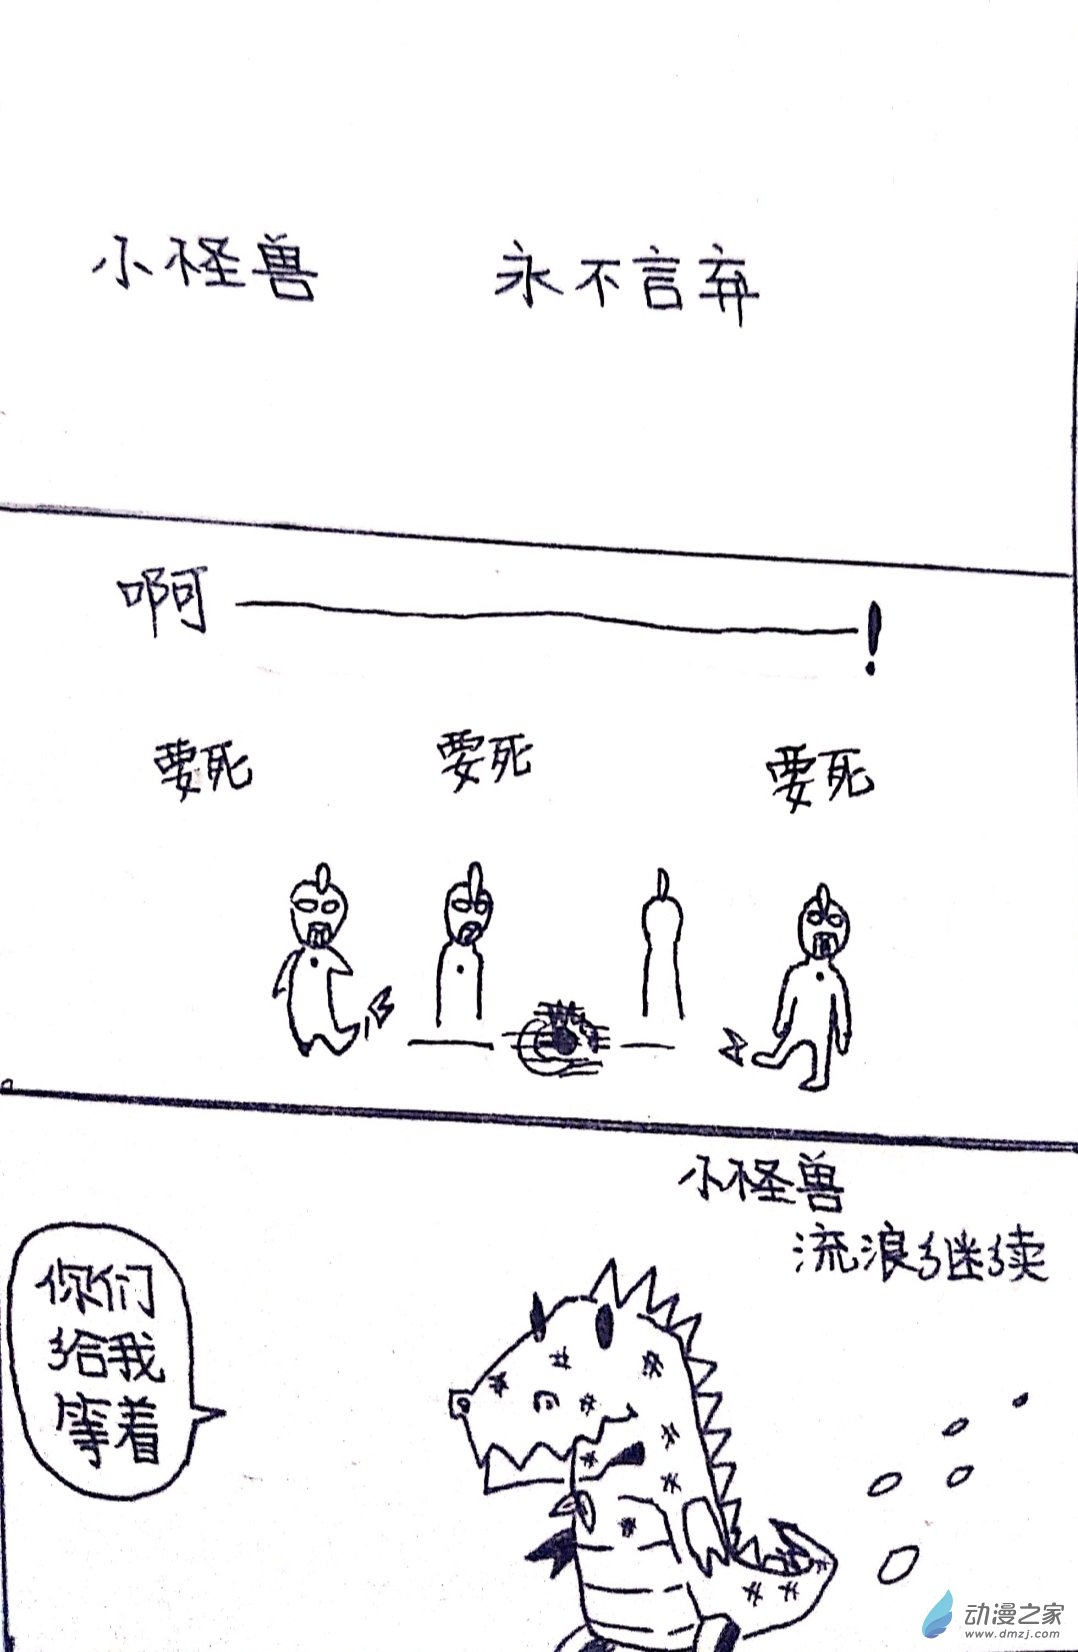 小怪兽 永不言弃
啊———!
要死 要死 要死
小怪兽
流浪继续
你们
给我
等着
动漫之家
www.dmzj.com